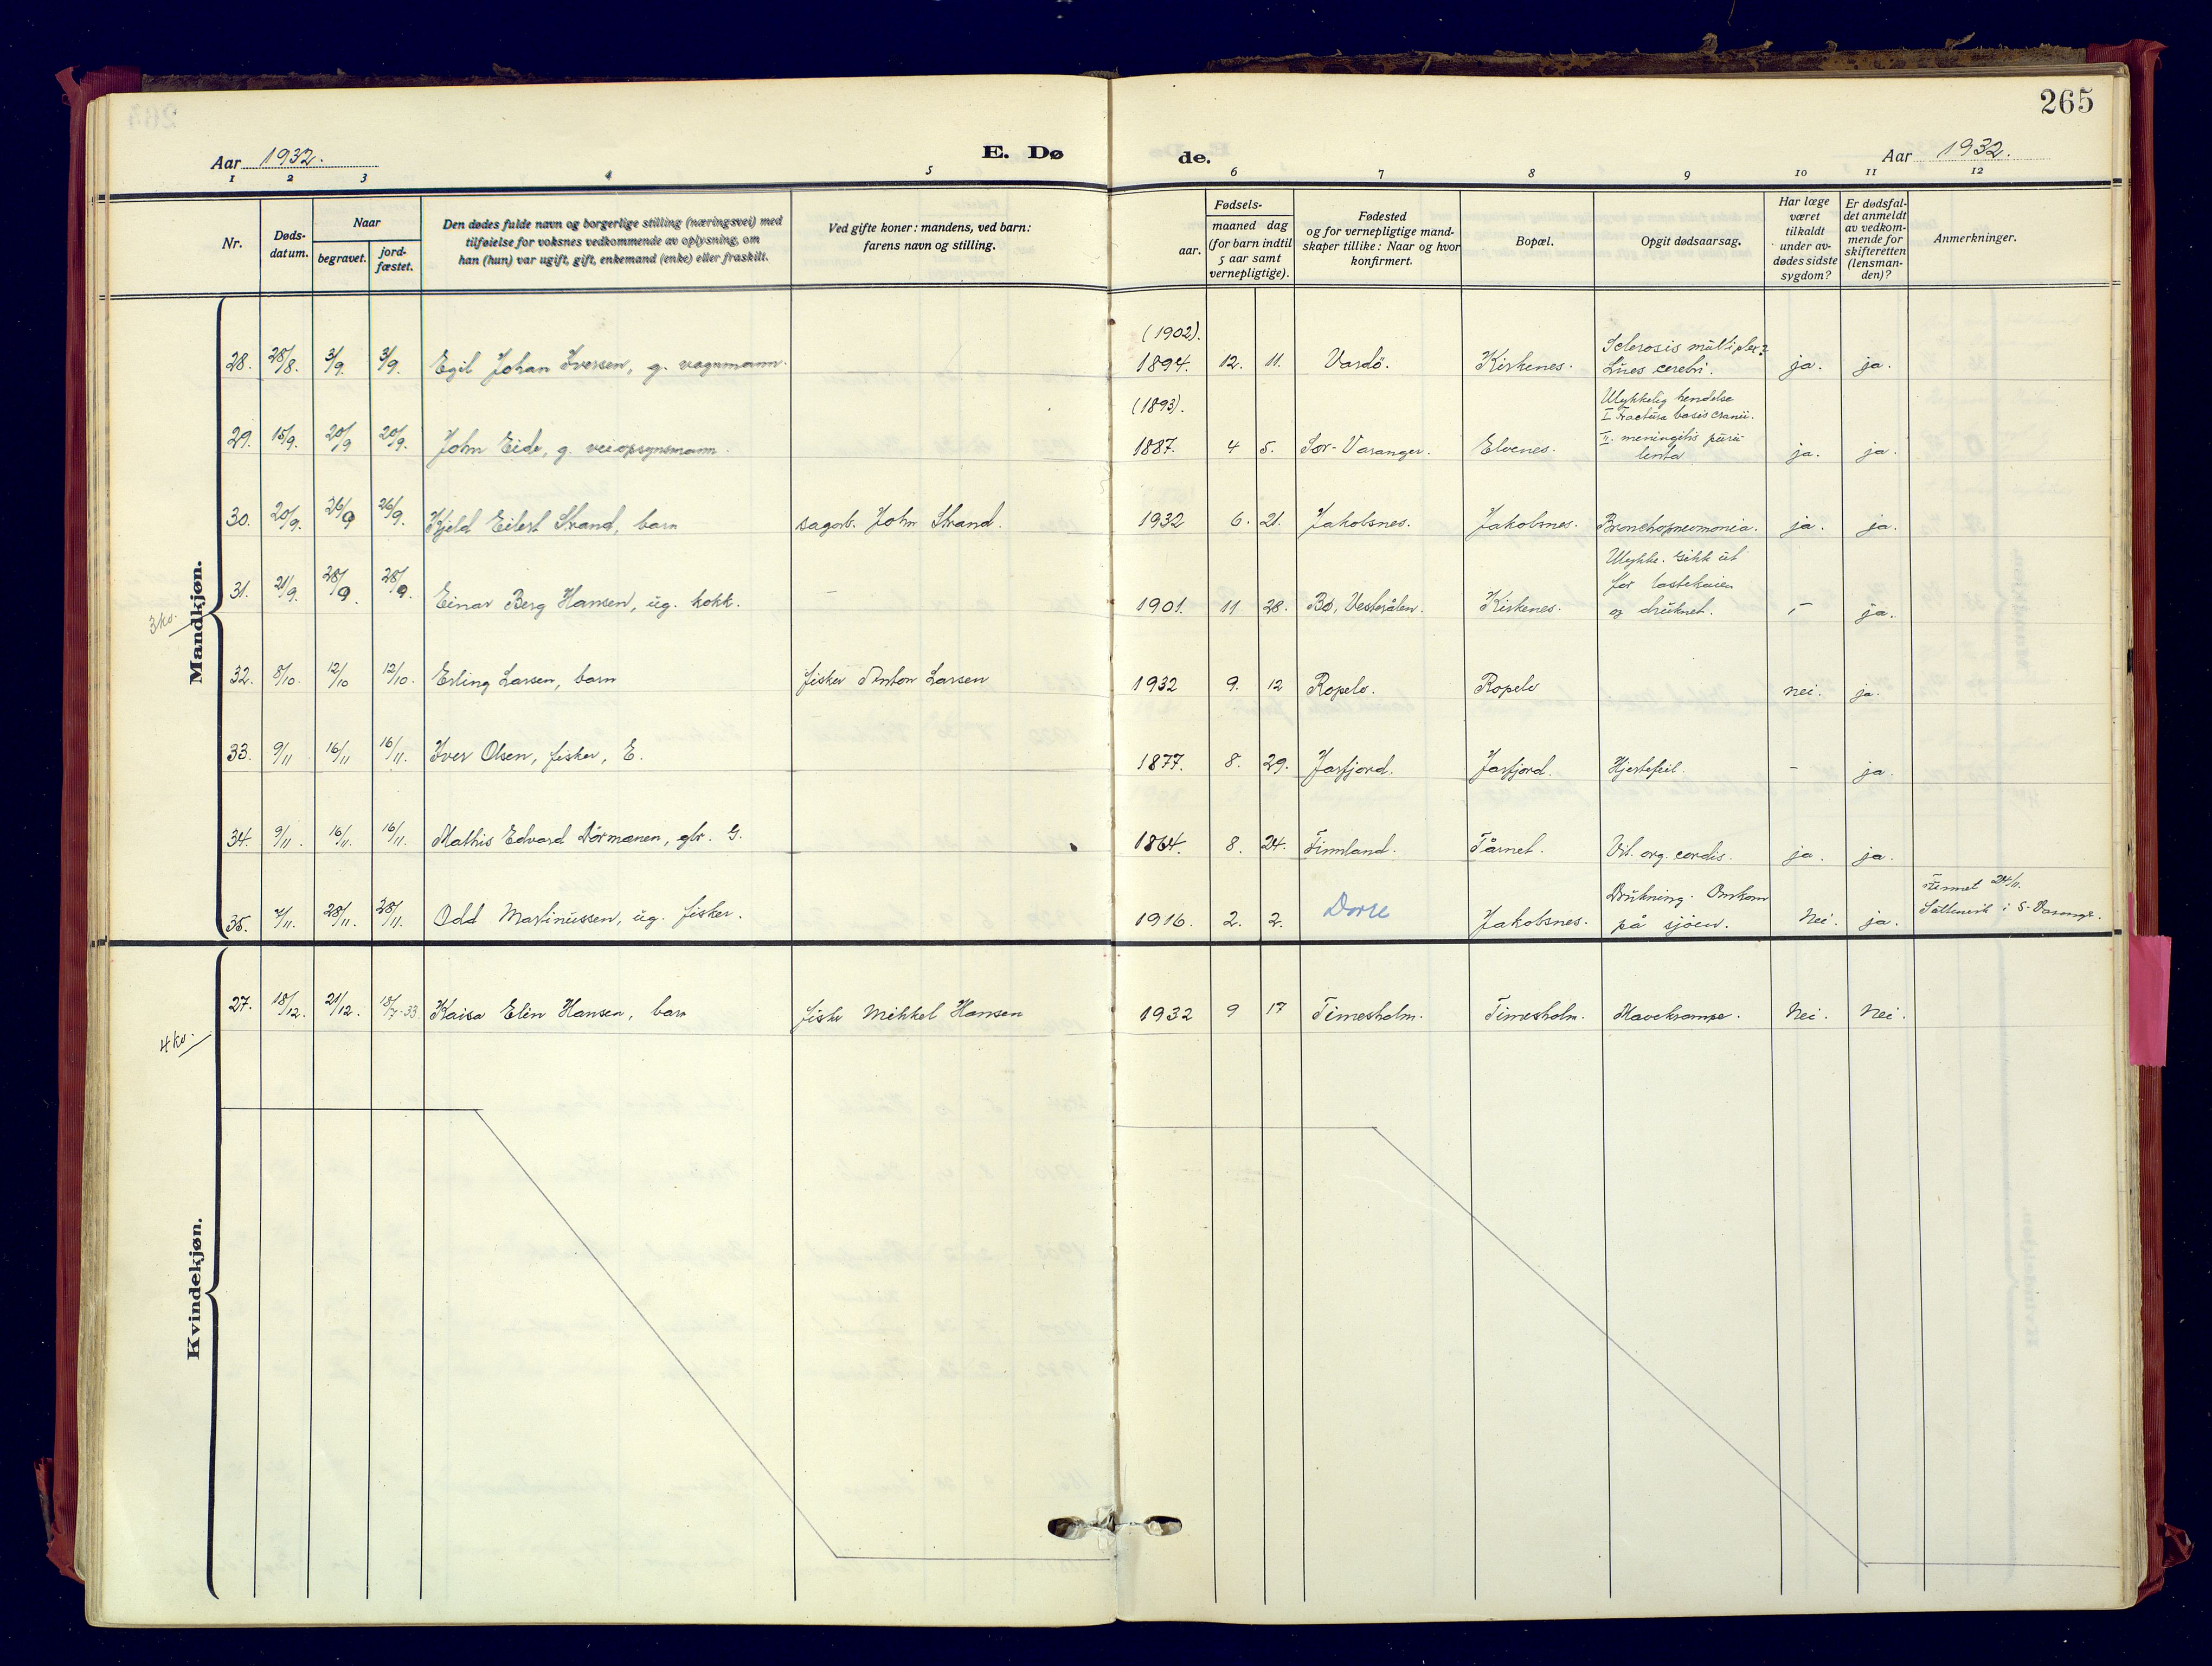 265
Aar 1932. E. Dø de. Aar 1932.
1 2 3 4 5 6 7 8 9 10 11 12
Nr.
Døds-
datum.
Naar
begravet.
jord-
fæstet.
Den dødes fulde navn og borgerlige stilling (næringsvei) med
tilføielse for voksnes vedkommende av oplysning, om
han (hun) var ugift, gift, enkemand (enke) eller fraskilt.
Ved gifte koner: mandens, ved barn:
farens navn og stilling.
Fødsels-
aar.
maaned dag
(for barn indtil
5 aar samt
vernepligtige).
Fødested
og for vernepligtige mand-
skaper tillike: Naar og hvor
konfirmert.
Bopæl.
Opgit dødsaarsag.
Har læge
været
tilkaldt
under av-
dødes sidste
sygdom?
Er dødsfal-
det anmeldt
av vedkom-
mende for
skifteretten
(lensman-
den)?
Anmerkninger.
Mandkjøn.
3 ko.
(1902).
Sclerosis multiplex?
28. 28/8. 3/9. 3/9. Egil Johan Iversen, g. vognmann. 1894. 12. 11. Vardö. Kirkenes. Lües cerebri. ja. ja.
(1893).
Ulykkelig hendelse
I Fractura basis cranii.
29. 15/9. 20/9 20/9. John Eide, g. veiopsynsmann. 1887. 4 5. Sør-Varanger. Elvenes. II. meningitis puru-
lenta ja. ja.
30. 20/9. 26/9 26/9. Kjeld Eilert Strand, barn sagarb. John Strand. 1932 6. 21. Jakobsnes. Jakobsnes. Bronchopneomonia. ja. ja.
Ulykke. Gikk ut
for lastekaien
31. 21/9. 28/9. 28/9. Einar Berg Hansen, ug. kokk. – 1901. 11 28. Bø, Vesterålen. Kirkenes. og druknet. – ja.
32. 8/10. 12/10 12/10. Erling Larsen, barn fisker Anton Larsen 1932 9. 12 Ropelv. Ropelv nei. ja.
33. 9/11 16/11 16/11. Iver Olsen, fisker, E. 1877. 8. 29. Jarfjord. Jarfjord. Hjertefeil. – ja.
34. 9/11. 16/11. 16/11. Mathis Edvard Dørmænen, gbr. G. 1864. 8. 24. Finnland. Tårnet. Vit. org. cordis. ja. ja.
Drukning. Omkom Funnet 24/11.
35. /11. 28/11. 28/11. Odd Martinussen, ug. fisker. 1916. 2. 2. Jakobsnes. på sjöen. Nei. ja. i S-Varanger.
Kvindekjøn.
4 ko.
27. 18/12. 21/12. 18/7-33. Kaisa Elin Hansen, barn fisker Mikkel Hansen 1932 9 17 Timesholm. Timesholm. Mavekrampe. Nei. Nei.